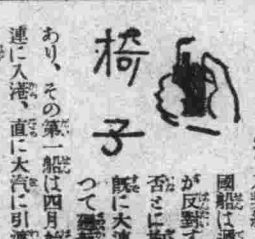 國船は
が反對す
否とに
既に大連
つて
椅子
あり、その第一船は四月
連に入港、直に大汽に引渡